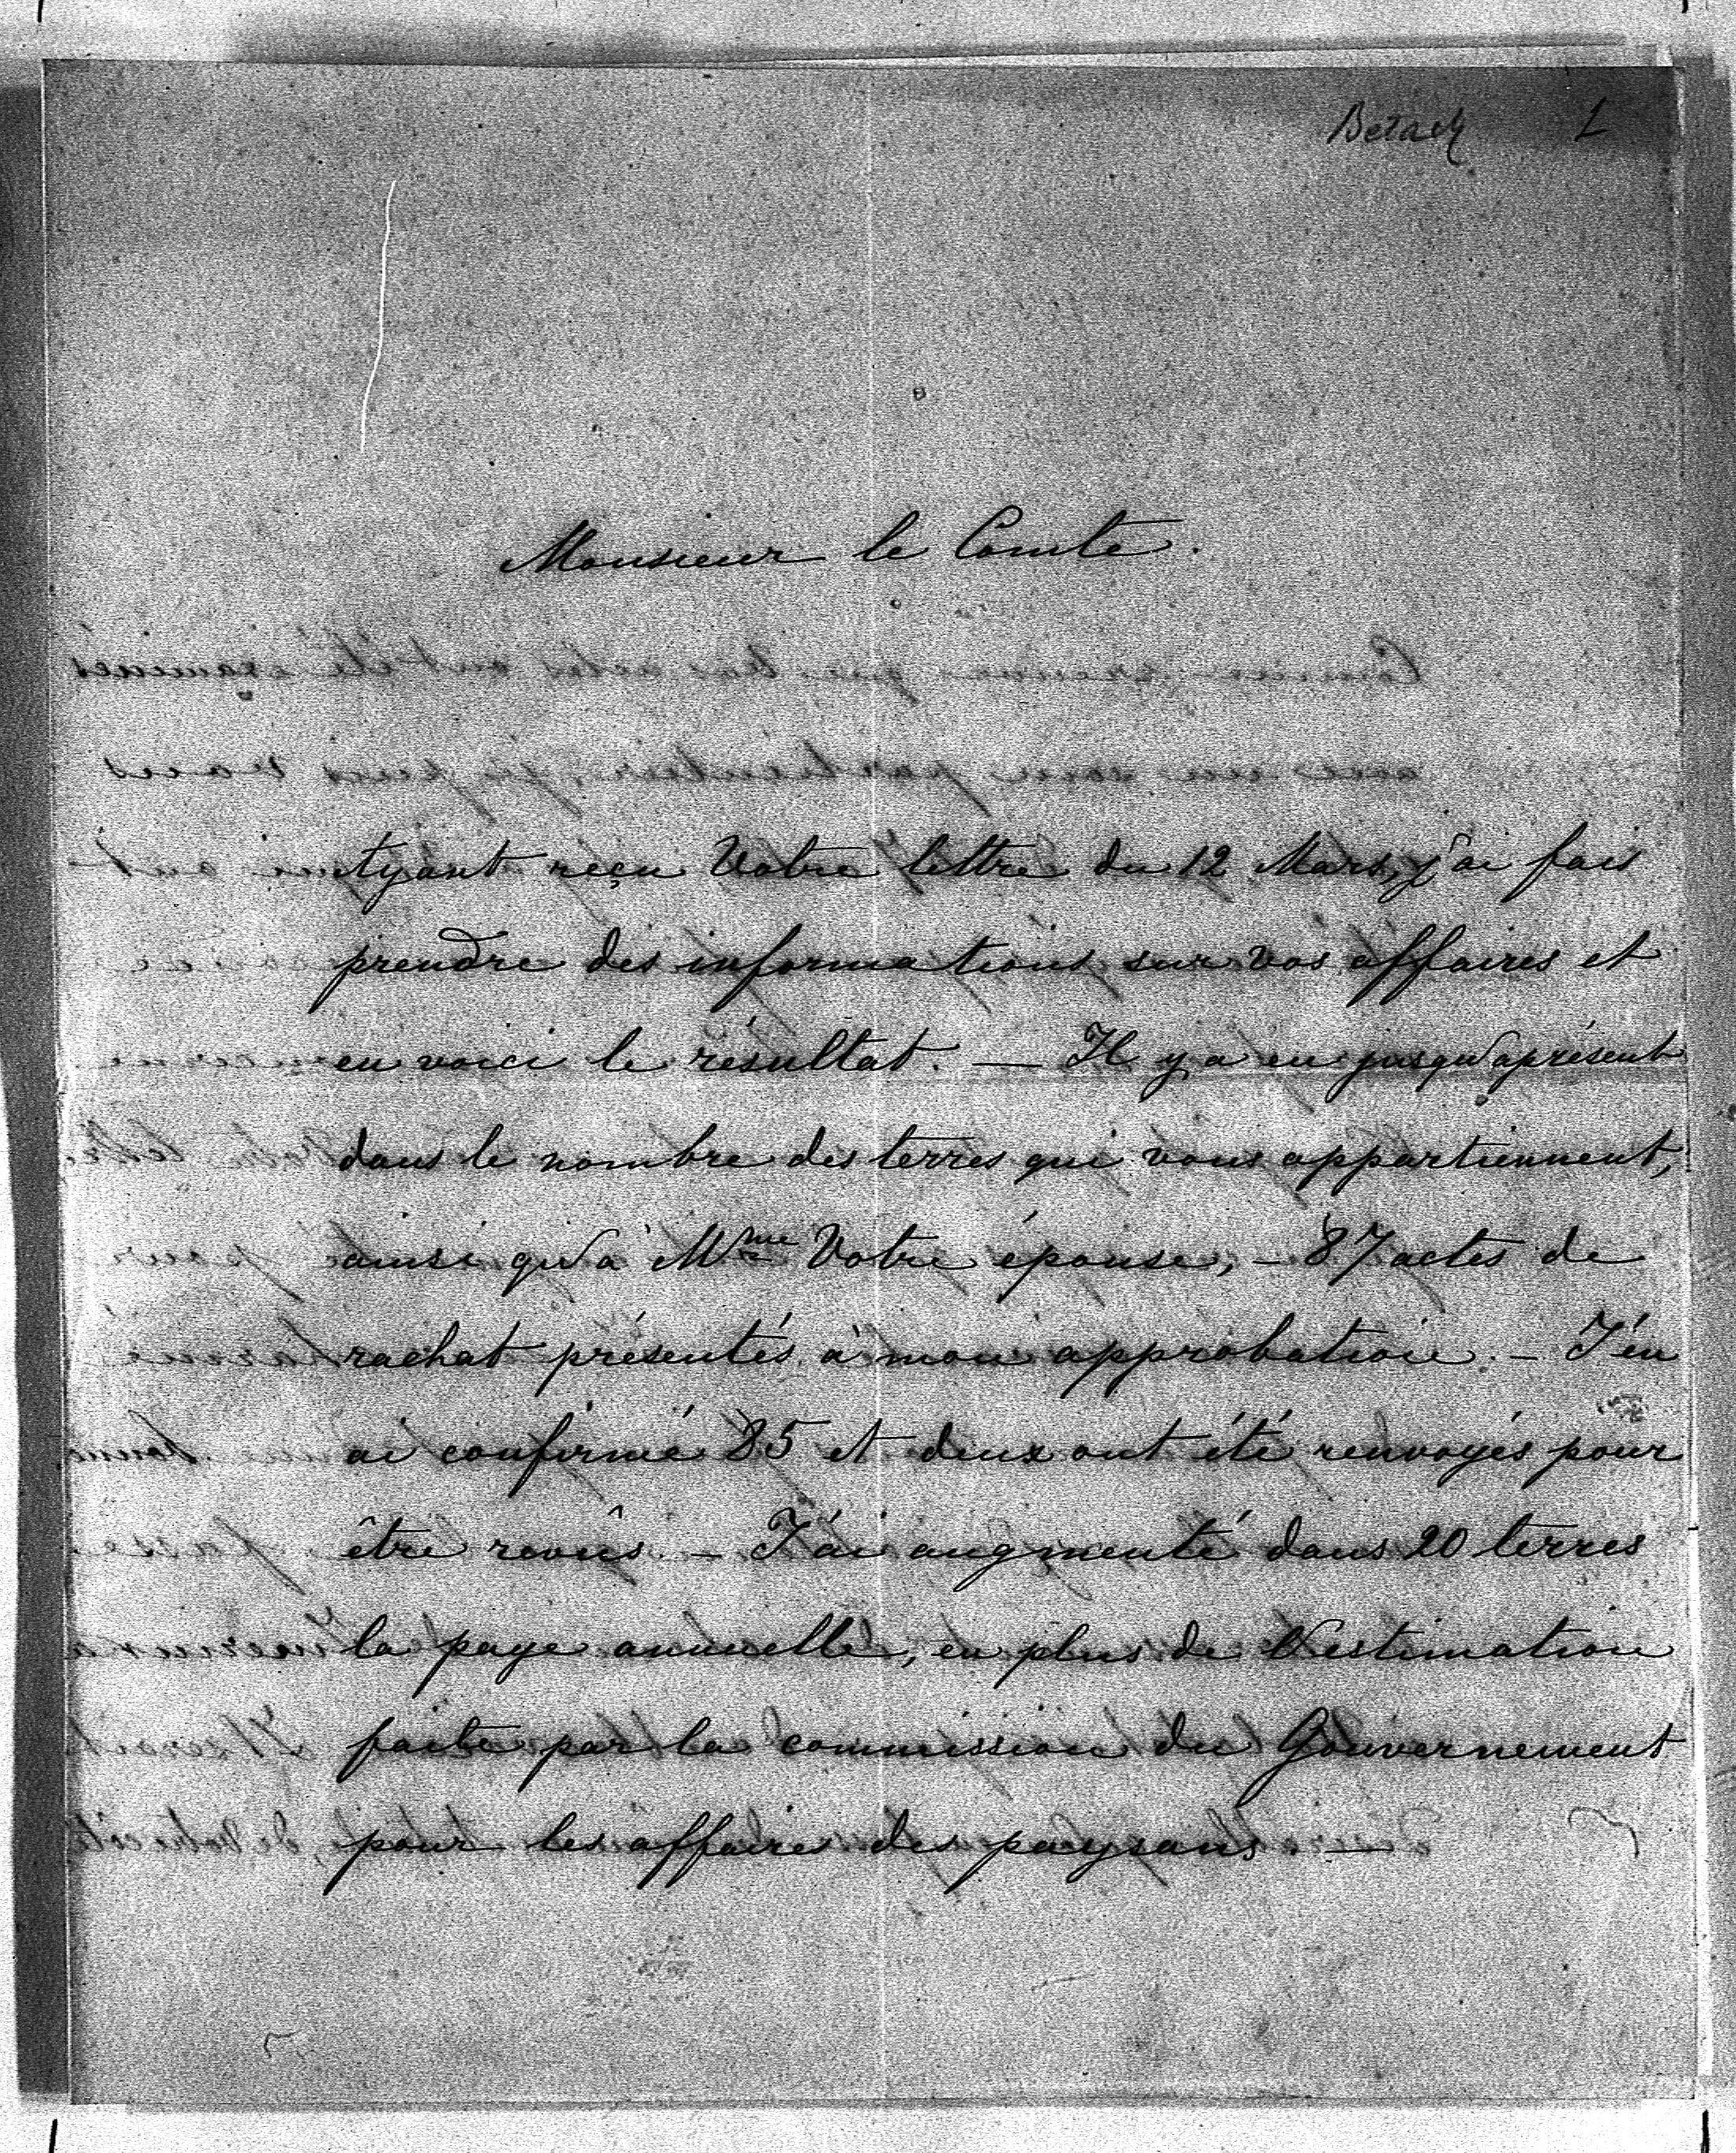 1
Monsieur le Comte.
Ayant reçu Votre lettre du 12 Mars, j'ai fais
prendre des informations sur vos affaires et
en voici le résultat. — Il y a eu jusqu'aprésent
dans le nombre des terres qui vous appartiennent,
ainsi qu'à Mme Votre épouse, – 87 actes de
rachat présentés à mon approbation. – J'en
ai confirmé 85 et deux ont été renvoyés pour
être revûs – J'ai augmenté dans 20 terres
la paye annuelle, en plus de l'estimation
faite par la commission du Gouvernement
pour les affaires des paysans. —